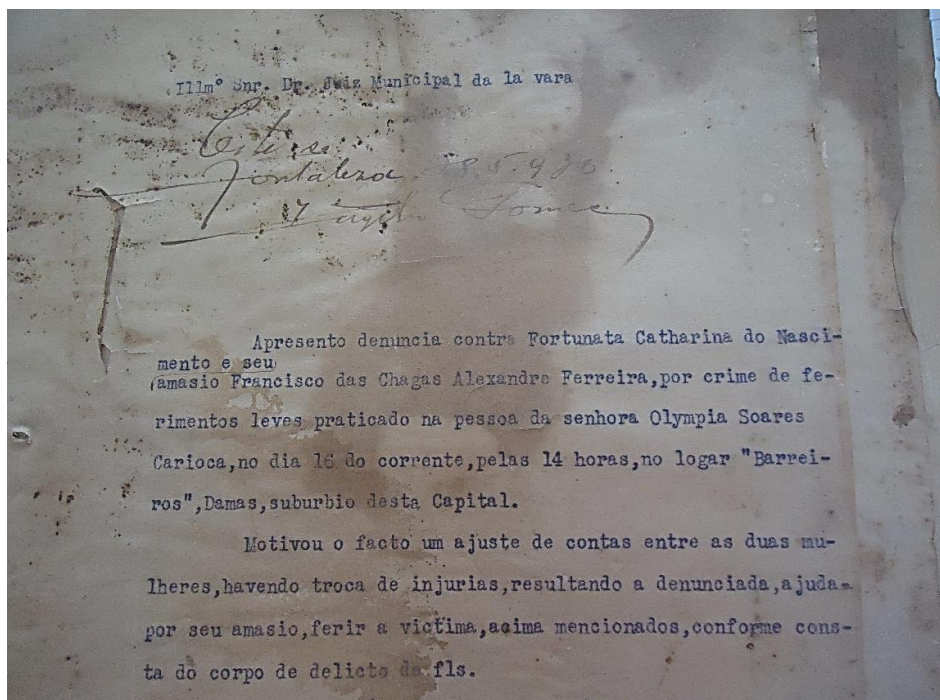 Illmº Snr. Dr. Juiz Municipal da 1a vara
Fortaleza 28.5.930
Gomes
Apresento denuncia contra Fortunata Catharina do Nasci-
mento e seu
amasio Francisco das Chagas Alexandre Ferreira,por crime de fe-
rimentos leves praticado na pessoa da senhora Olympia Soares
Carioca,no dia 16 do corrente,pelas 14 horas,no logar "Barrei-
ros",Damas,suburbio desta Capital.
Motivou o facto um ajuste de contas entre as duas mu-
lheres,havendo troca de injurias,resultando a denunciada,ajuda-
por seu amasio,ferir a victima,acima mencionados,conforme cons-
ta do corpo de delicto de fls.